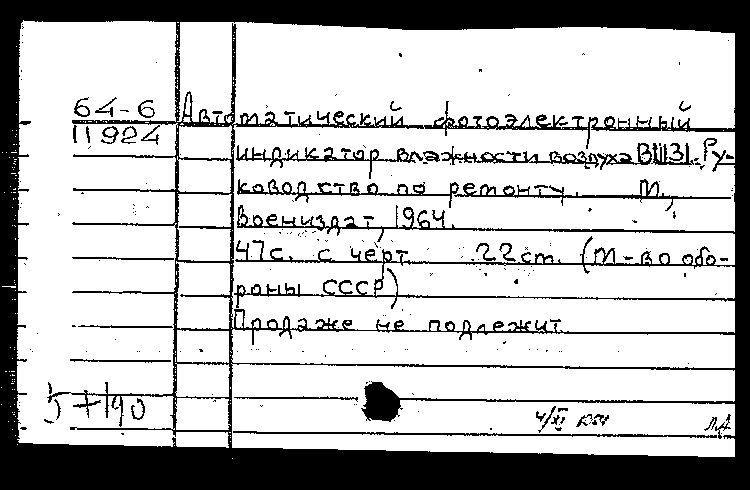 64-6
11924
Автоматический фотоэлектронный
индикатор влажности воздуха ВШ31. Ру-
ководство по ремонту. М.,
Воениздат, 1964.
47с. с черт. 22 см. (М-во обо-
роны СССР)
Продаже не подлежит